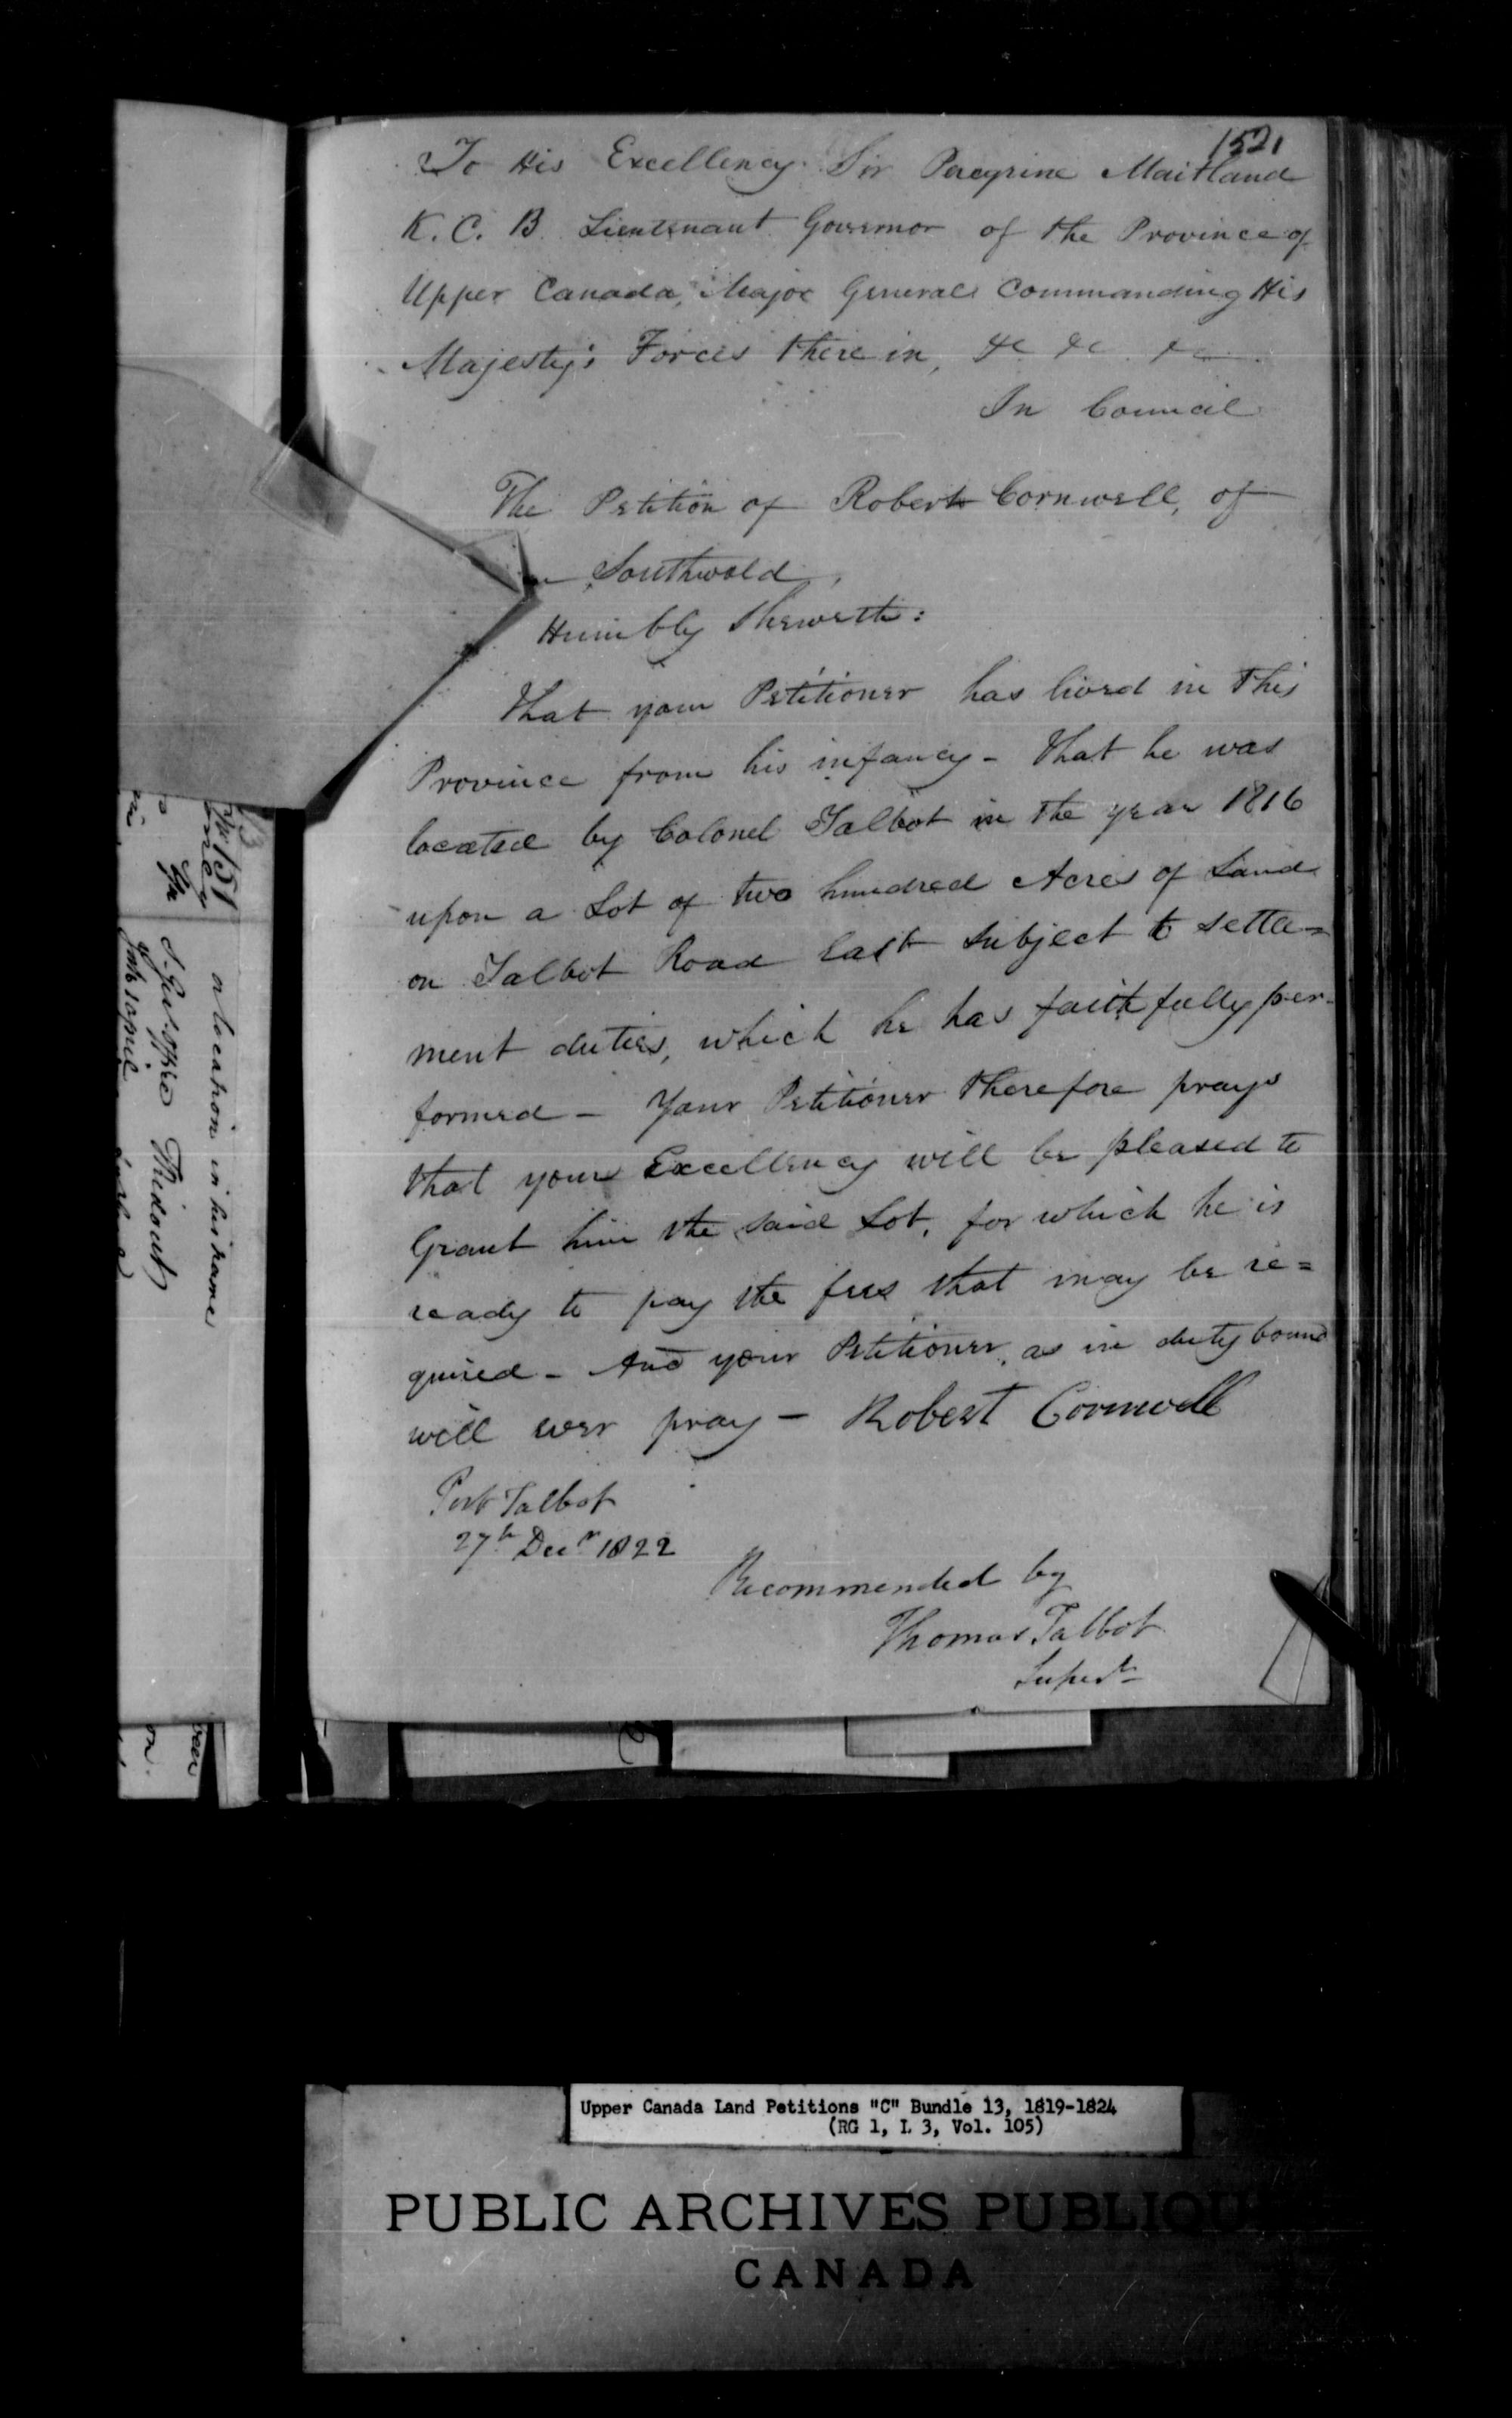 152,
To His Excellency Sir Peregrine Maitland
K. C. B. Lieutenant Governor of the Province of
Upper Canada, Major General Commanding His
Majesty's Forces therein, &c &c &c
In Council
The Petition of Robert Cornwell, of
Southwold,
Humbly Sheweth:
That your Petitioner has lived in this
Province from his infancy - That he was
located by Colonel Talbot in the year 1816
upon a Lot of two hundred Acres of Land
on Talbot Road East Subject to settle=
ment duties, which he has faithfully per-
formed - Your Petitioner therefore prays
that your Excellency will be pleased to
Grant him the said Lot, for which he is
ready to pay the fees that may be re=
quired - And your Petitioner, as in duty bound
will ever pray - Robert Cornwell
Port Talbot
27th Decr 1822
Recommended by
Thomas Talbot
Supdt
151
a location in his name
Ridout
been
on
Upper Canada Land Petitions "C" Bundle 13, 1819-1824
(RG 1, L 3, Vol. 105)
PUBLIC ARCHIVES PUBLIQU
CANADA